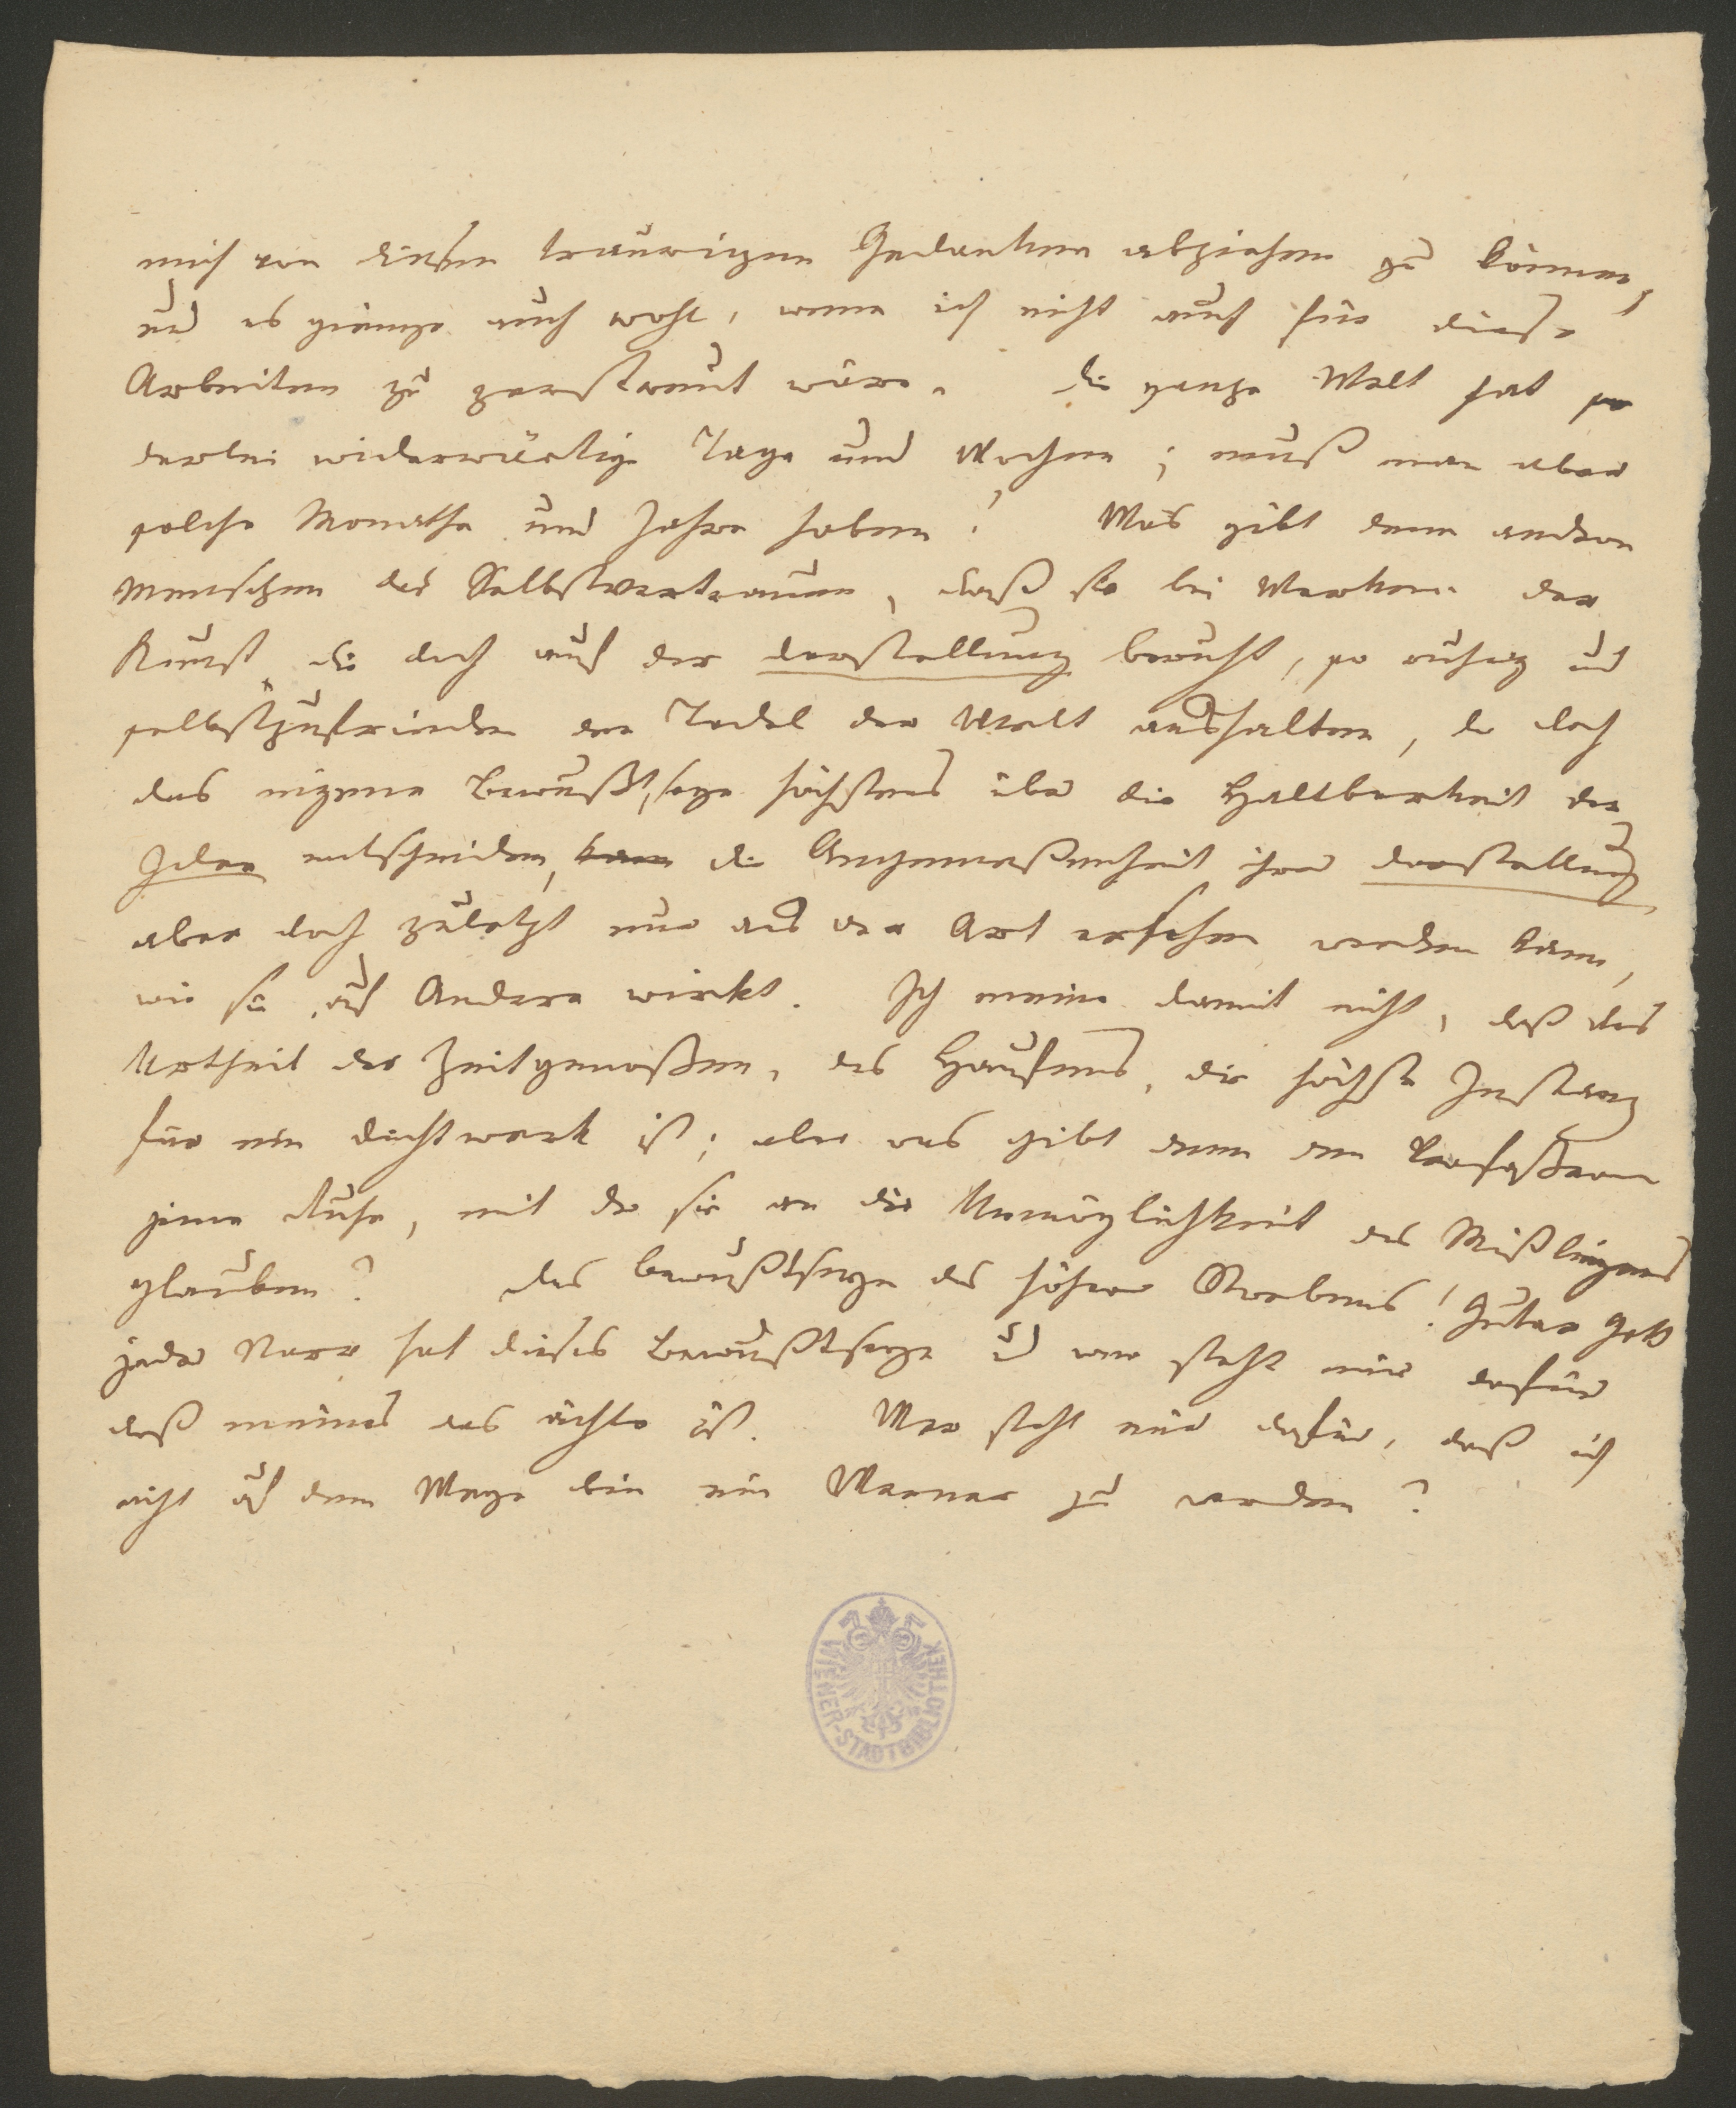 mich von diesen traurigen Gedanken abziehen zu können,
und es gienge auch wohl, wenn ich nicht auch für diese
Arbeiten zu zerstreut wäre. Die ganze Welt hat so
derlei widerwärtige Tage und Wochen; muß man aber
solche Monathe und Jahre haben! Was gibt denn andern
Menschen das Selbstvertrauen, daß sie bei Werken der
Kunst, die doch auf der Darstellung beruht, so ruhig und
selbstzufrieden den Tadel der Welt aushalten, da doch
das eigene Bewußtseyn höchstens über die Haltbarkeit der
Idee entscheiden, kann die Angemessenheit ihrer Darstellung
aber doch zuletzt nur aus der Art ersehen werden kann,
wie sie auf Andere wirkt. Ich meine damit nicht, daß das
Urtheil der Zeitgenoßen, des Haufens, die höchste Instanz
für ein Dichtwerk ist; aber was gibt denn den Verfaßern
jene Ruhe, mit der sie an die Unmöglichkeit des Mißlingens
glauben? Das Bewußtseyn des höhern Strebens! Guter Gott
jeder Narr hat dieses Bewußtseyn und wer steht mir dafür
daß meines das ächte ist. Wer steht mir dafür, daß ich
nicht auf dem Wege bin ein Werner zu werden?
WIENER-STADTBIBLIOTHEK